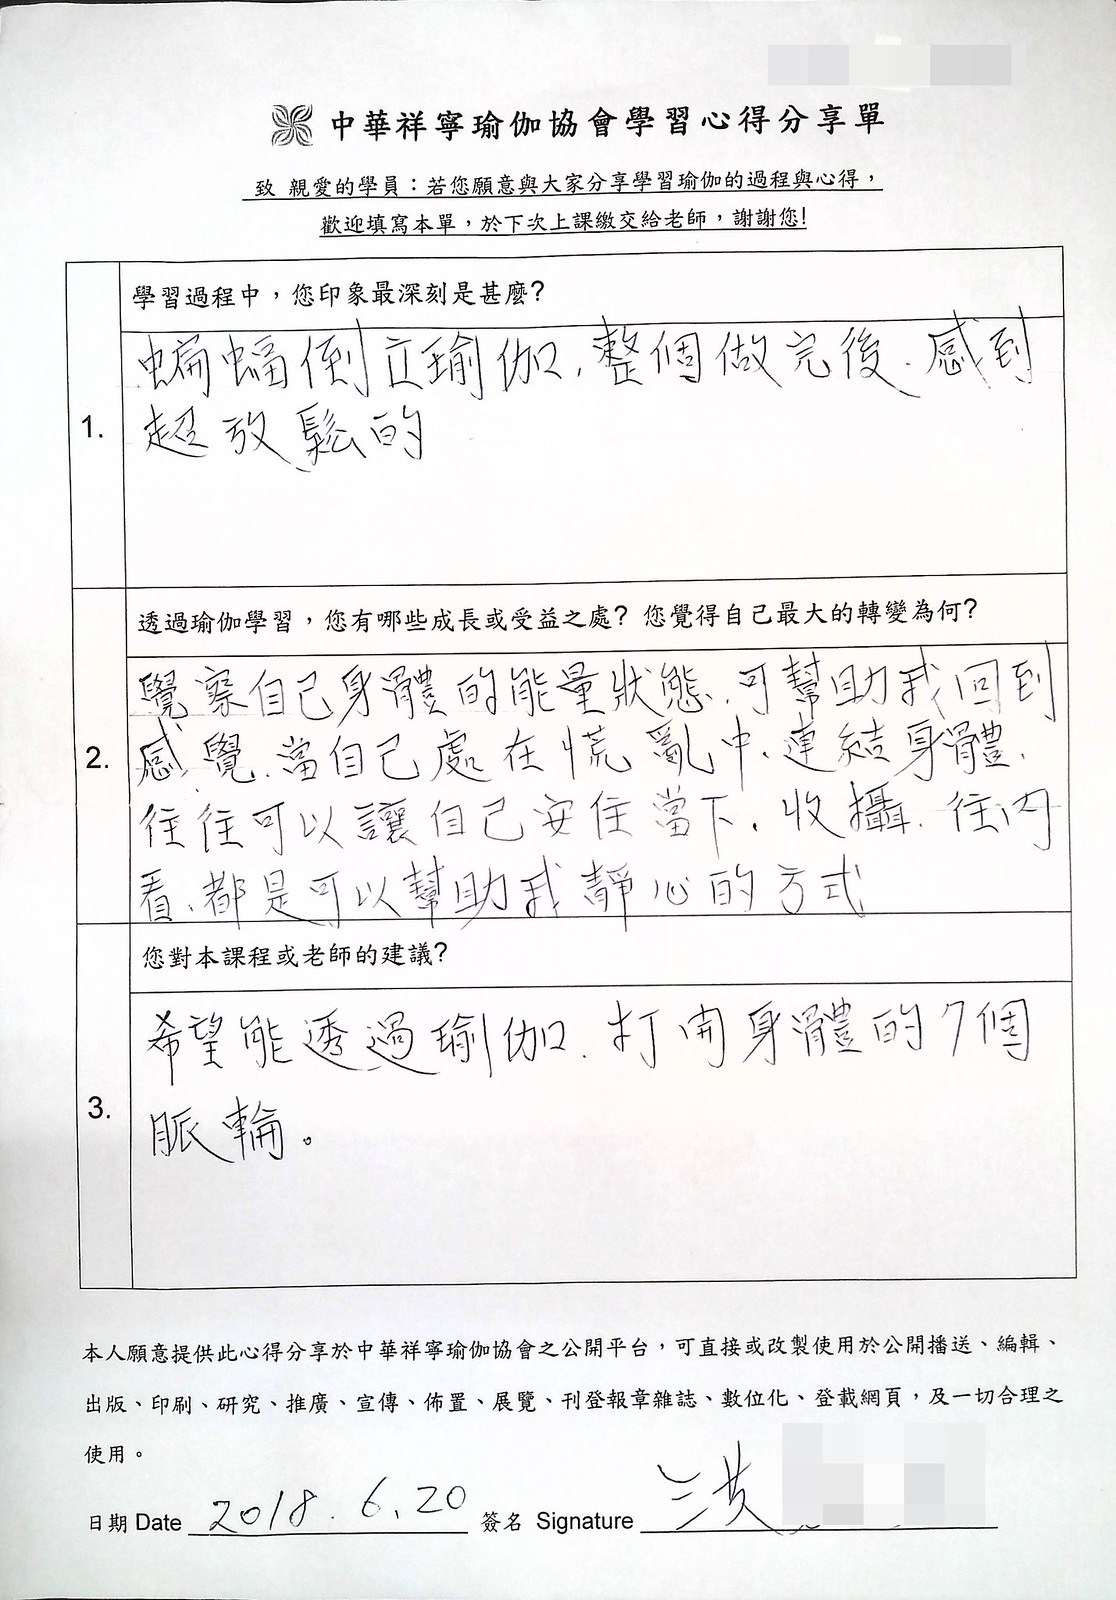 中華祥寧瑜伽協會學習心得分享單
致 親愛的學員：若您願意與大家分享學習瑜伽的過程與心得，
歡迎填寫本單，於下次上課繳交給老師，謝謝您!
學習過程中，您印象最深刻是甚麼?
1.
蝙蝠倒立瑜伽,整個做完後.感到
超放鬆的
透過瑜伽學習，您有哪些成長或受益之處? 您覺得自己最大的轉變為何?
2.
覺察自己身體的能量狀態.可幫助我回到
感覺.當自己處在慌亂中.連結身體.
往往可以讓自己安住當下.收攝.往內
看.都是可以幫助我靜心的方式
您對本課程或老師的建議?
3.
希望能透過瑜伽.打開身體的7個
脈輪。
本人願意提供此心得分享於中華祥寧瑜伽協會之公開平台，可直接或改製使用於公開播送、編輯、
出版、印刷、研究、推廣、宣傳、佈置、展覽、刊登報章雜誌、數位化、登載網頁，及一切合理之
使用。
日期 Date 2018.6.20 簽名 Signature 洪